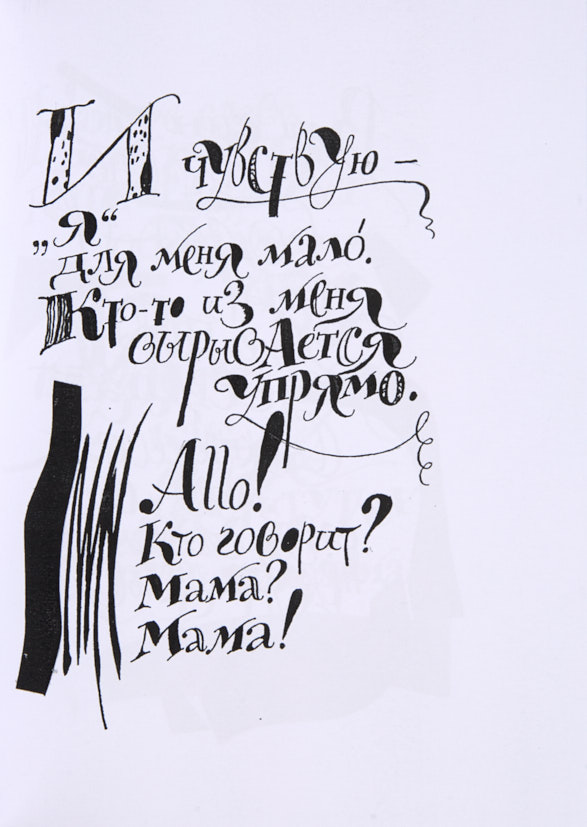 И чувствую —
„Я“
для меня мало́.
Кто-то из меня
вырывается
упрямо.
Allo!
Кто говорит?
Мама?
Мама!